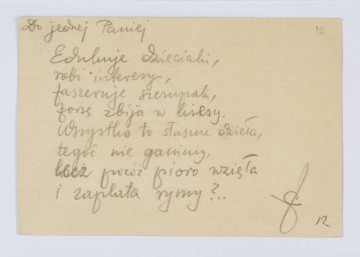 Do jednej Paniej
Edukuje dzieciaki,
robi interesy,
faszeruje szczupaki,
forsę zbija w kiesy.
Wszystko to słuszne dzieła,
tegoć nie ganimy,
lecz pocóż pióro wzięła
i zaplata rymy?..
12